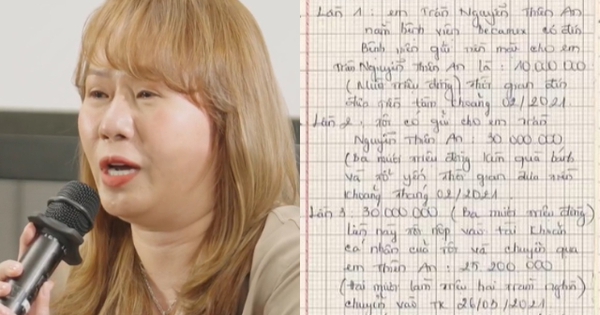 Lần 1 : em Trần Nguyễn Thiên An
nằm bệnh viện becamex có đến
bệnh viện gửi tiền mặt cho em
Trần Nguyễn Thiên An là : 10 000 000
(Mười triệu đồng) thời gian đến
khoảng 02/2021
Lần 2 : tôi có gửi cho em
Nguyễn Thiên An 30 000 000
(Ba mươi triệu đồng kèm quà bánh
và tổ yến thời gian đưa tiền
khoảng tháng 02/2021
Lần 3 : 30 000 000 (Ba mươi triệu đồng)
lần này tôi nộp vào tài khoản
cá nhân của tôi và chuyển qua
em Thiên An : 25 200 000
(hai mươi lăm triệu hai trăm nghìn)
chuyển vào TK 26/03/2021